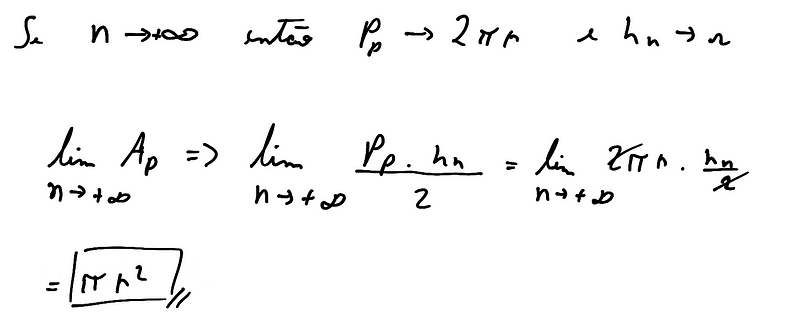 Se n → +∞ então Pp → 2πr e hn → r
lim n→+∞ Ap => lim n→+∞ Pp . hn / 2 = lim n→+∞ 2πr . hn / 2
= πr²